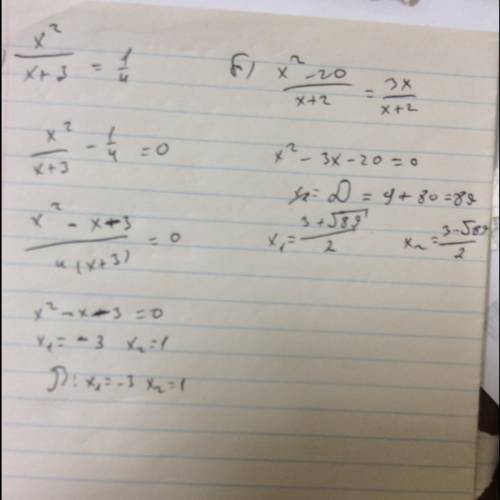 x²/(x+3) = 1/4
x²/(x+3) - 1/4 = 0
(x² - x - 3)/(4(x+3)) = 0
x² - x - 3 = 0
x₁ = -3 x₂ = 1
x₁ = -3 x₂ = 1
б) (x² - 20)/(x+2) = 3x/(x+2)
x² - 3x - 20 = 0
D = 9 + 80 = 89
x₁ = (3+√89)/2 x₂ = (3-√89)/2